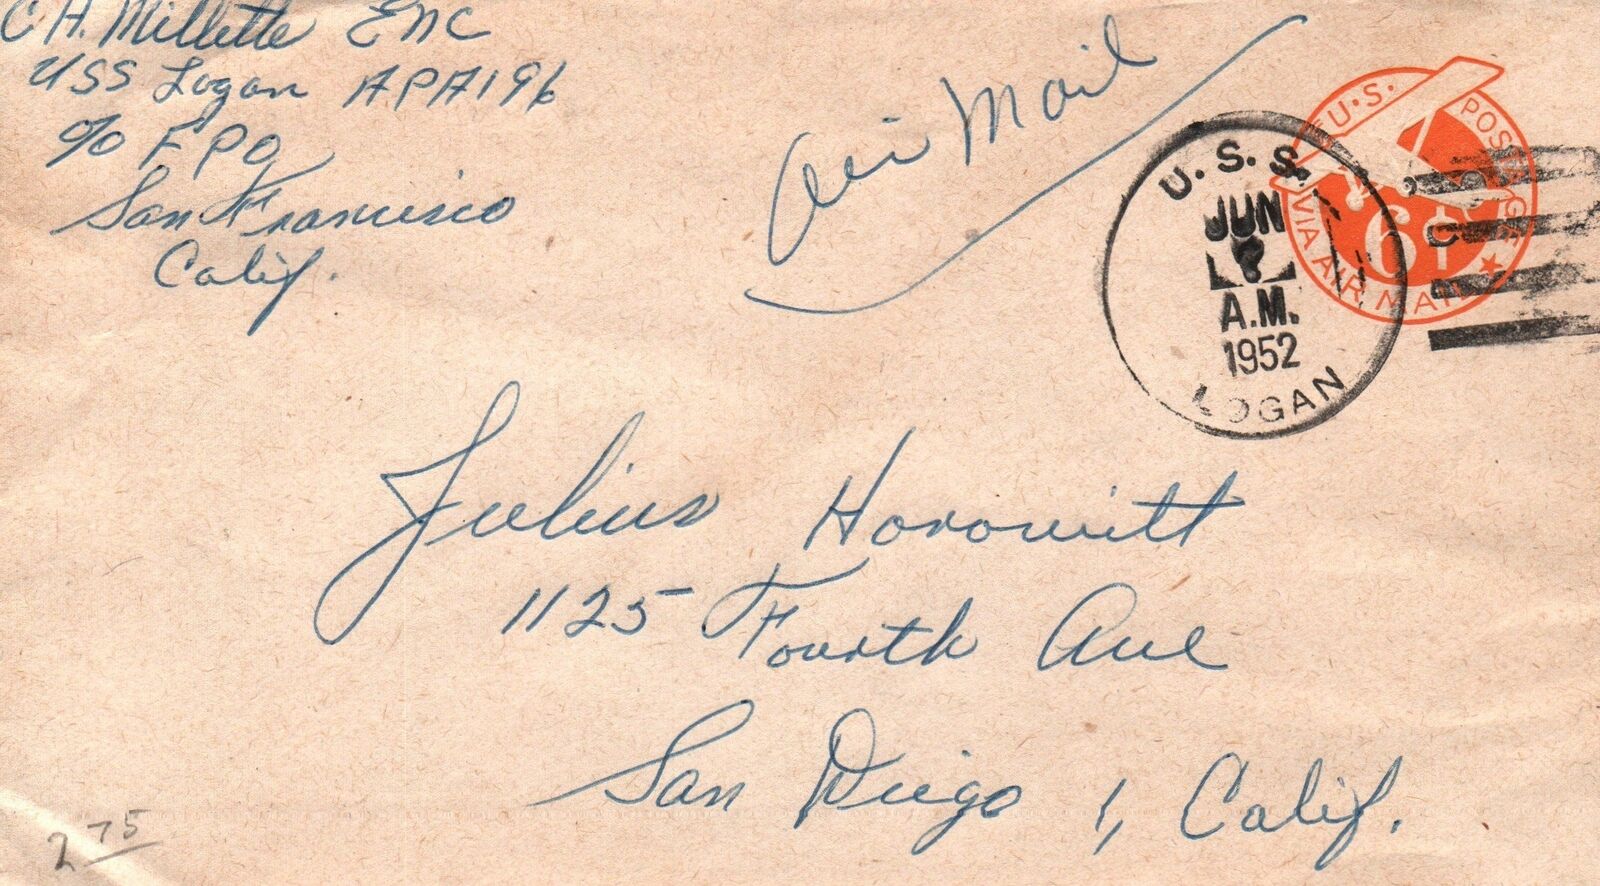 C H. Millette ENC
USS Logan APA196
c/o FPO
San Francisco
Calif.
Air Mail
U.S. POSTAGE
VIA AIR MAIL
6¢
U. S. S.
JUN
A.M.
1952
LOGAN
Julius Horowitt
1125 Fourth Ave
San Diego 1, Calif.
2 75